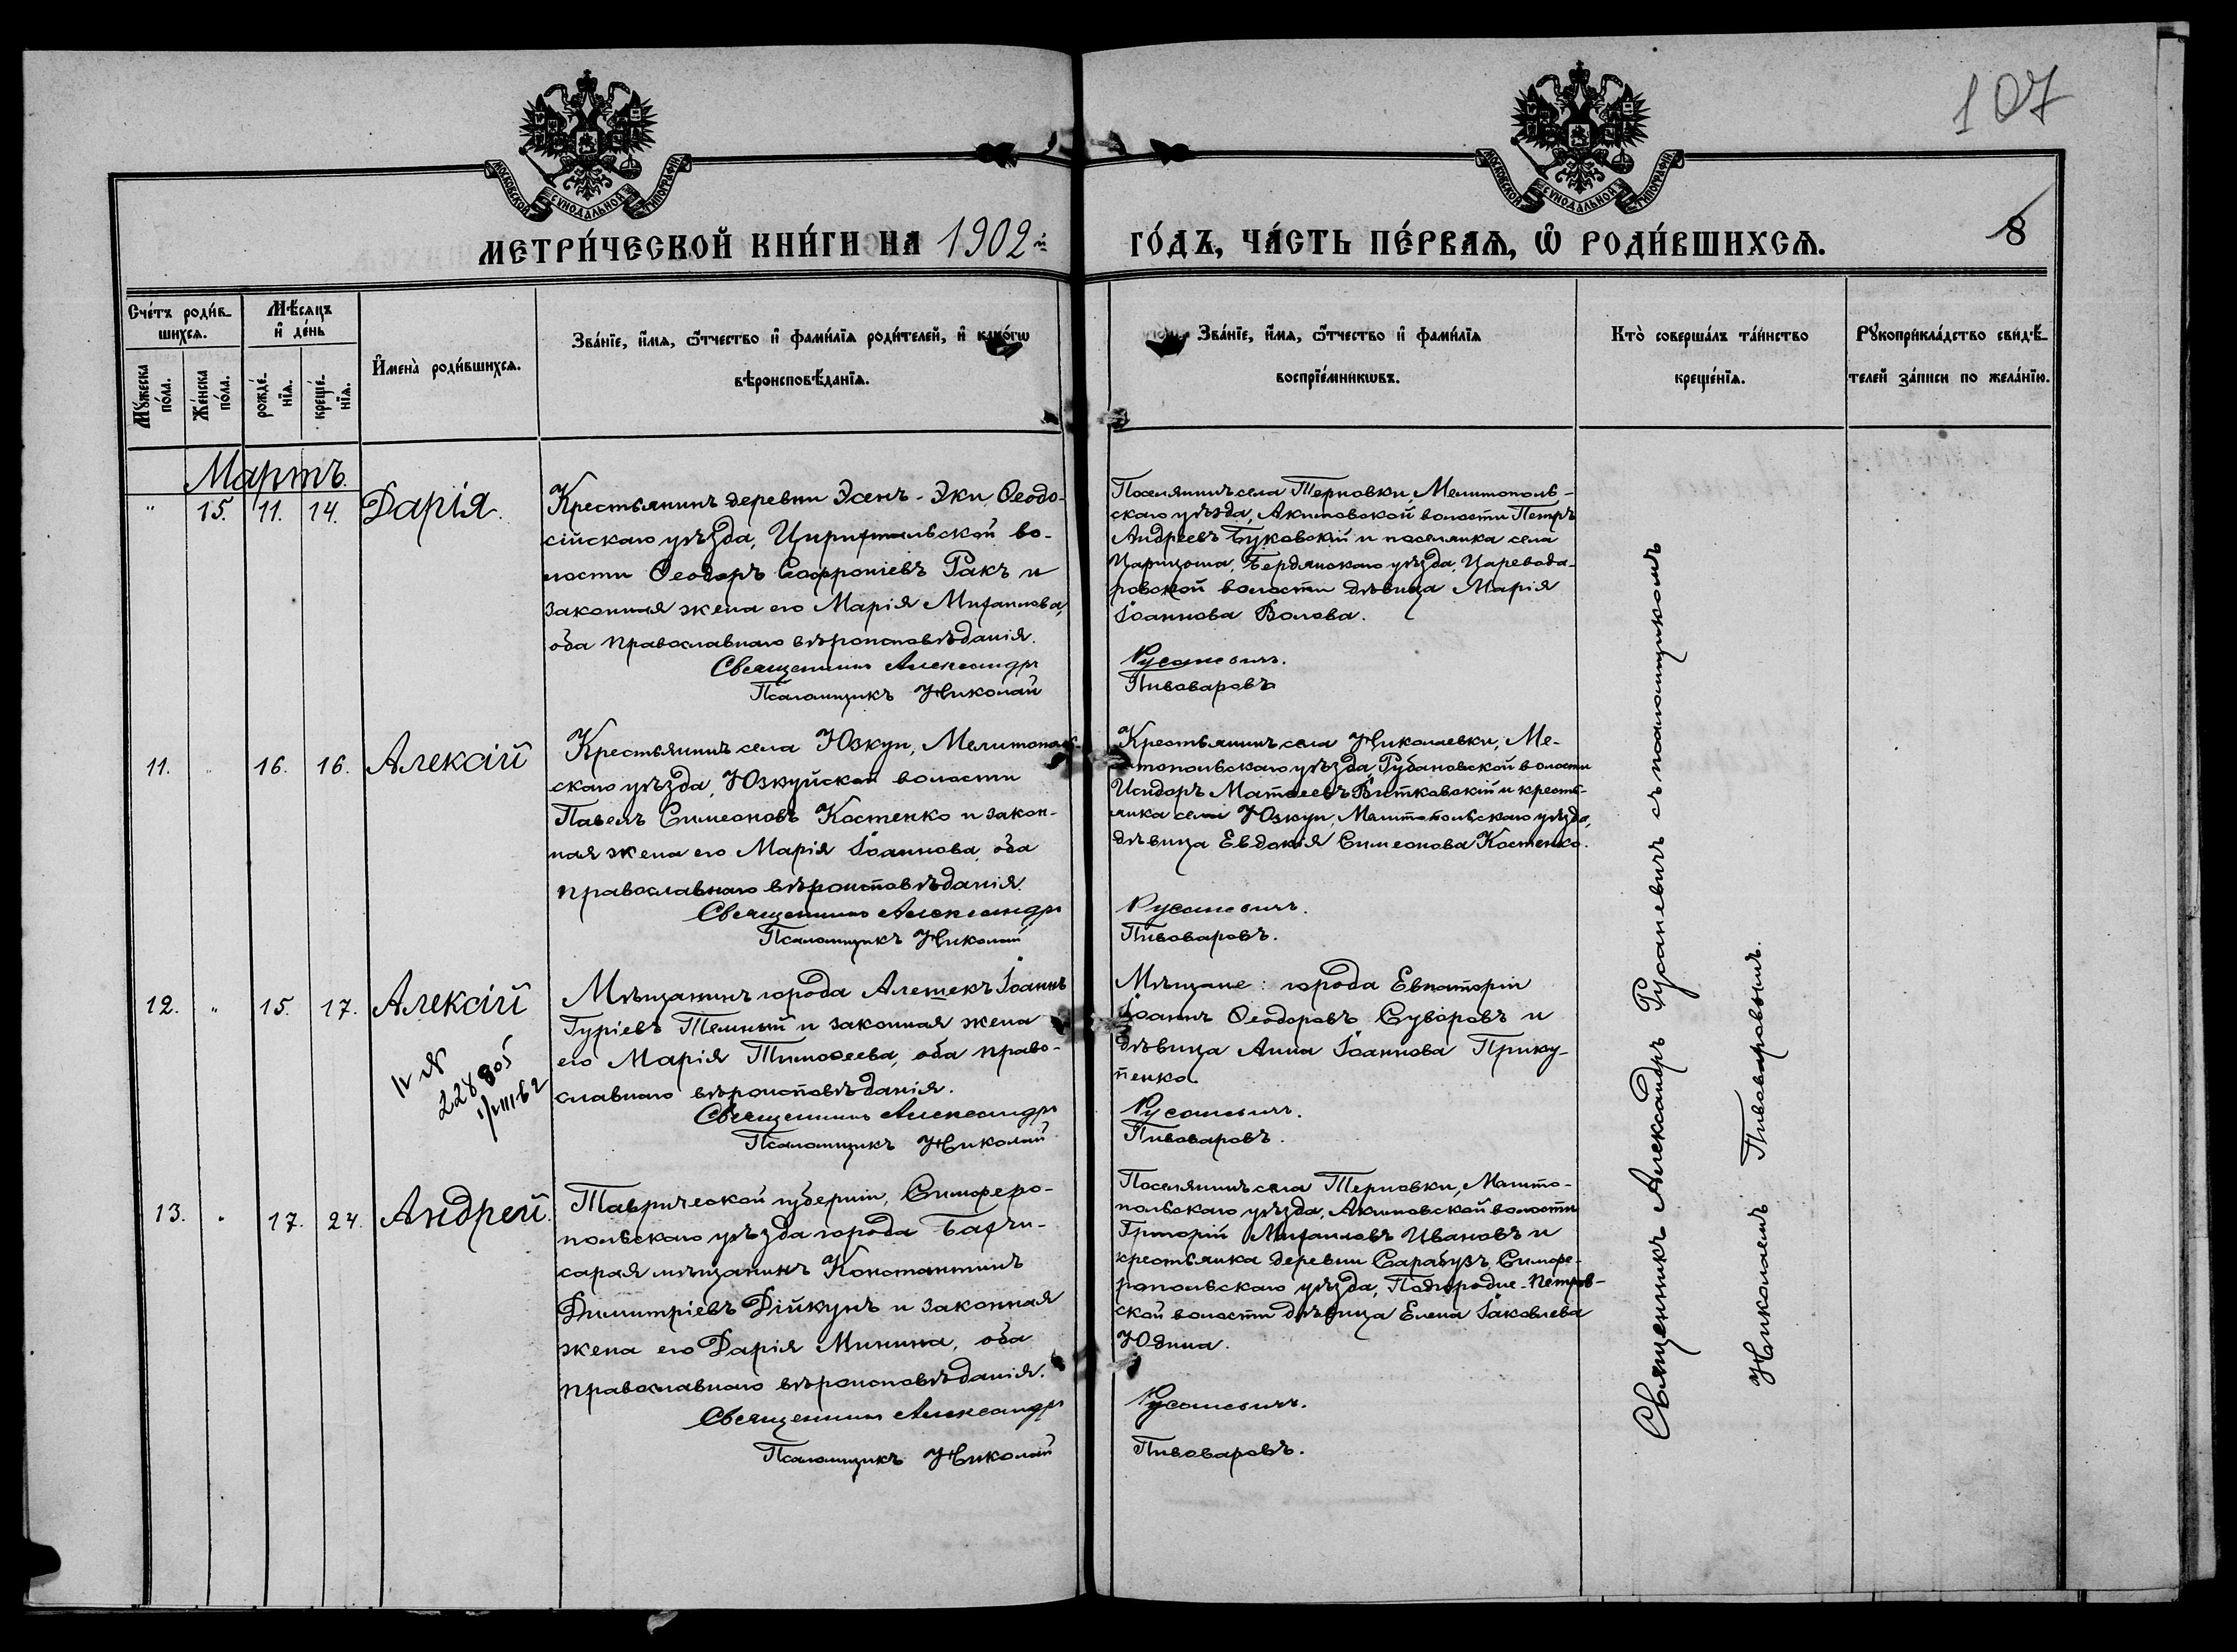 107
МОСКОВСКОЙ СѴНОДАЛЬНОЙ ТИПОГРАФІИ
МОСКОВСКОЙ СѴНОДАЛЬНОЙ ТИПОГРАФІИ
МЕТРИ́ЧЕСКОЙ КНИ́ГИ НА 1902й ГО́ДЪ, ЧА́СТЬ ПЕ́РВАЯ, Ѽ РОДИ́ВШИХСЯ.
8
Сче́тъ роди́в-
шихся.
Мѣ́сяцъ
и де́нь
Му́жеска
по́ла.
Же́нска
по́ла.
рожде́-
нїя.
креще́-
нїя.
Имена̀ роди́вшихся.
Зва́нїе, и́мя, ѻ́тчество и фами́лїя роди́телей, и како́гѡ
вѣроисповѣ́данїя.
Зва́нїе, и́мя, ѻ́тчество и фами́лїя
воспрїе́мникѡвъ.
Кто̀ соверша́лъ та́инство
креще́нїя.
Рукоприкла́дство свидѣ́-
телей за́писи по жела́нїю.
Мартъ.
" 15. 11. 14. Дарія.
Крестьянинъ деревни Эсенъ-Эки, Ѳеодо-
сійскаго уѣзда, во-
лости Ѳеодоръ Софроніевъ Ракъ и
законная жена его Марія Михаилова,
оба православнаго вѣроисповѣданія.
Священникъ Александръ
Псаломщикъ Николай
Поселянинъ села Терновки, Мелитополь-
скаго уѣзда, Акимовской волости Петръ
Андреевъ Буковскій и поселянка села
Бердянскаго уѣзда, Царевода-
ровской волости дѣвица Марія
Іоаннова Волова.
Русаневичъ.
Пивоваровъ
11. " 16. 16. Алексій
Крестьянинъ села Юзкуи, Мелитополь-
скаго уѣзда, Юзкуйской волости
Павелъ Симеоновъ Костенко и закон-
ная жена его Марія Іоаннова, оба
православнаго вѣроисповѣданія.
Священникъ Александръ
Псаломщикъ Николай
Крестьянинъ села Николаевки, Ме-
литопольскаго уѣзда, Рубановской волости
Исидоръ Матѳеевъ Витковскій и кресть-
янка села Юзкуи, Мелитопольскаго уѣзда,
дѣвица Евдокія Симеонова Костенко.
Русаневичъ.
Пивоваровъ.
12. " 15. 17. Алексій
IV №
228805
1/VIII-62
Мѣщанинъ города Алешекъ Іоаннъ
Гуріевъ Темный и законная жена
его Марія Тимоѳеева, оба право-
славнаго вѣроисповѣданія.
Священникъ Александръ
Псаломщикъ Николай
Мѣщане: города Евпаторіи
Іоаннъ Ѳеодоровъ Суворовъ и
дѣвица Анна Іоаннова Прику-
пенко
Русаневичъ.
Пивоваровъ.
13. " 17. 24. Андрей.
Таврической губерніи, Симферо-
польскаго уѣзда города Бахчи-
сарая мѣщанинъ Константинъ
Димитріевъ Дійкунъ и законная
жена его Дарія Минина, оба
православнаго вѣроисповѣданія.
Священникъ Александръ
Псаломщикъ Николай
Поселянинъ села Терновки, Мелито-
польскаго уѣзда, Акимовской волости
Григорій Михаиловъ Ивановъ и
крестьянка деревни Сарабузъ, Симфе-
ропольскаго уѣзда, Подгородне-Петров-
ской волости дѣвица Елена Іаковлева
Юдина.
Русаневичъ.
Пивоваровъ.
Священникъ Александръ Русаневичъ съ псаломщикомъ
Николаемъ Пивоваровымъ.